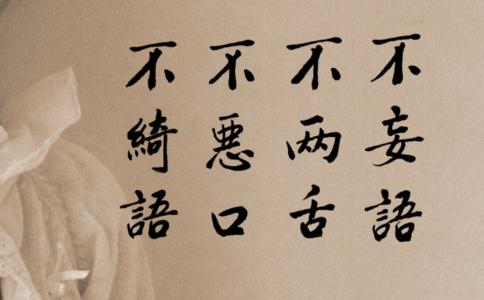 不妄語
不两舌
不悪口
不綺語